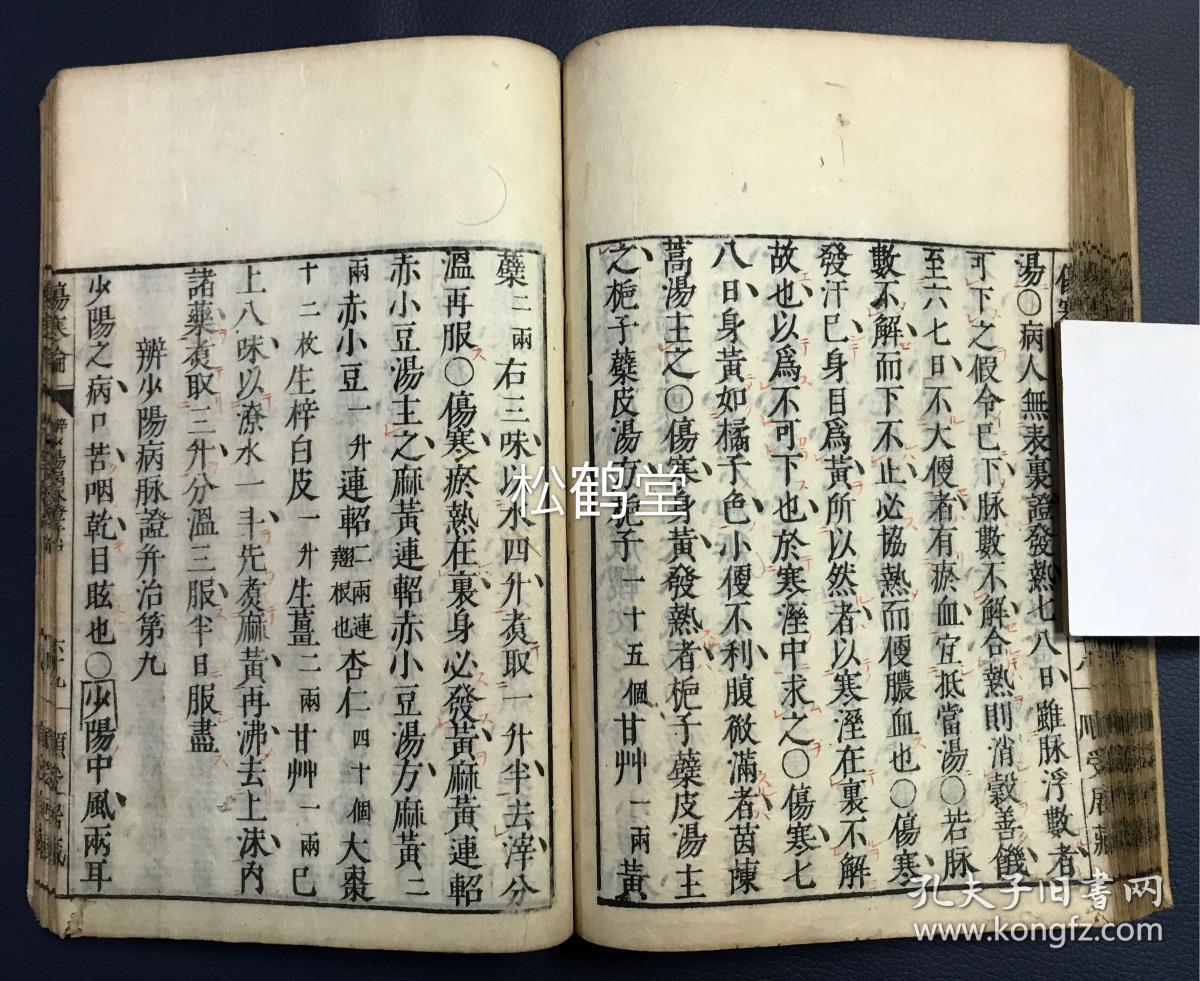 湯〇病人無表裏證發熱七八日雖脉浮數者
可下之假令已下脉數不解合熱則消穀善饑
至六七日不大便者有瘀血宜抵當湯〇若脉
數不解而下不止必協熱而便膿血也〇傷寒
發汗已身目爲黃所以然者以寒溼在裏不解
故也以爲不可下也於寒溼中求之〇傷寒七
八日身黃如橘子色小便不利腹微滿者茵蔯
蒿湯主之〇傷寒身黃發熱者梔子蘗皮湯主
之梔子蘗皮湯方梔子一十五個甘艸一兩黃
蘗二兩右三味以水四升煑取一升半去滓分
溫再服〇傷寒瘀熱在裏身必發黃麻黃連軺
赤小豆湯主之麻黃連軺赤小豆湯方麻黃二
兩赤小豆一升連軺二兩連翹根也杏仁四十個大棗
十二枚生梓白皮一升生薑二兩甘艸一兩已
上八味以潦水一斗先煑麻黃再沸去上沫内
諸藥煑取三升分溫三服半日服盡
辨少陽病脉證弁治第九
少陽之病口苦咽乾目眩也〇少陽中風兩耳
傷寒論
松鹤堂
孔夫子旧书网
www.kongfz.com